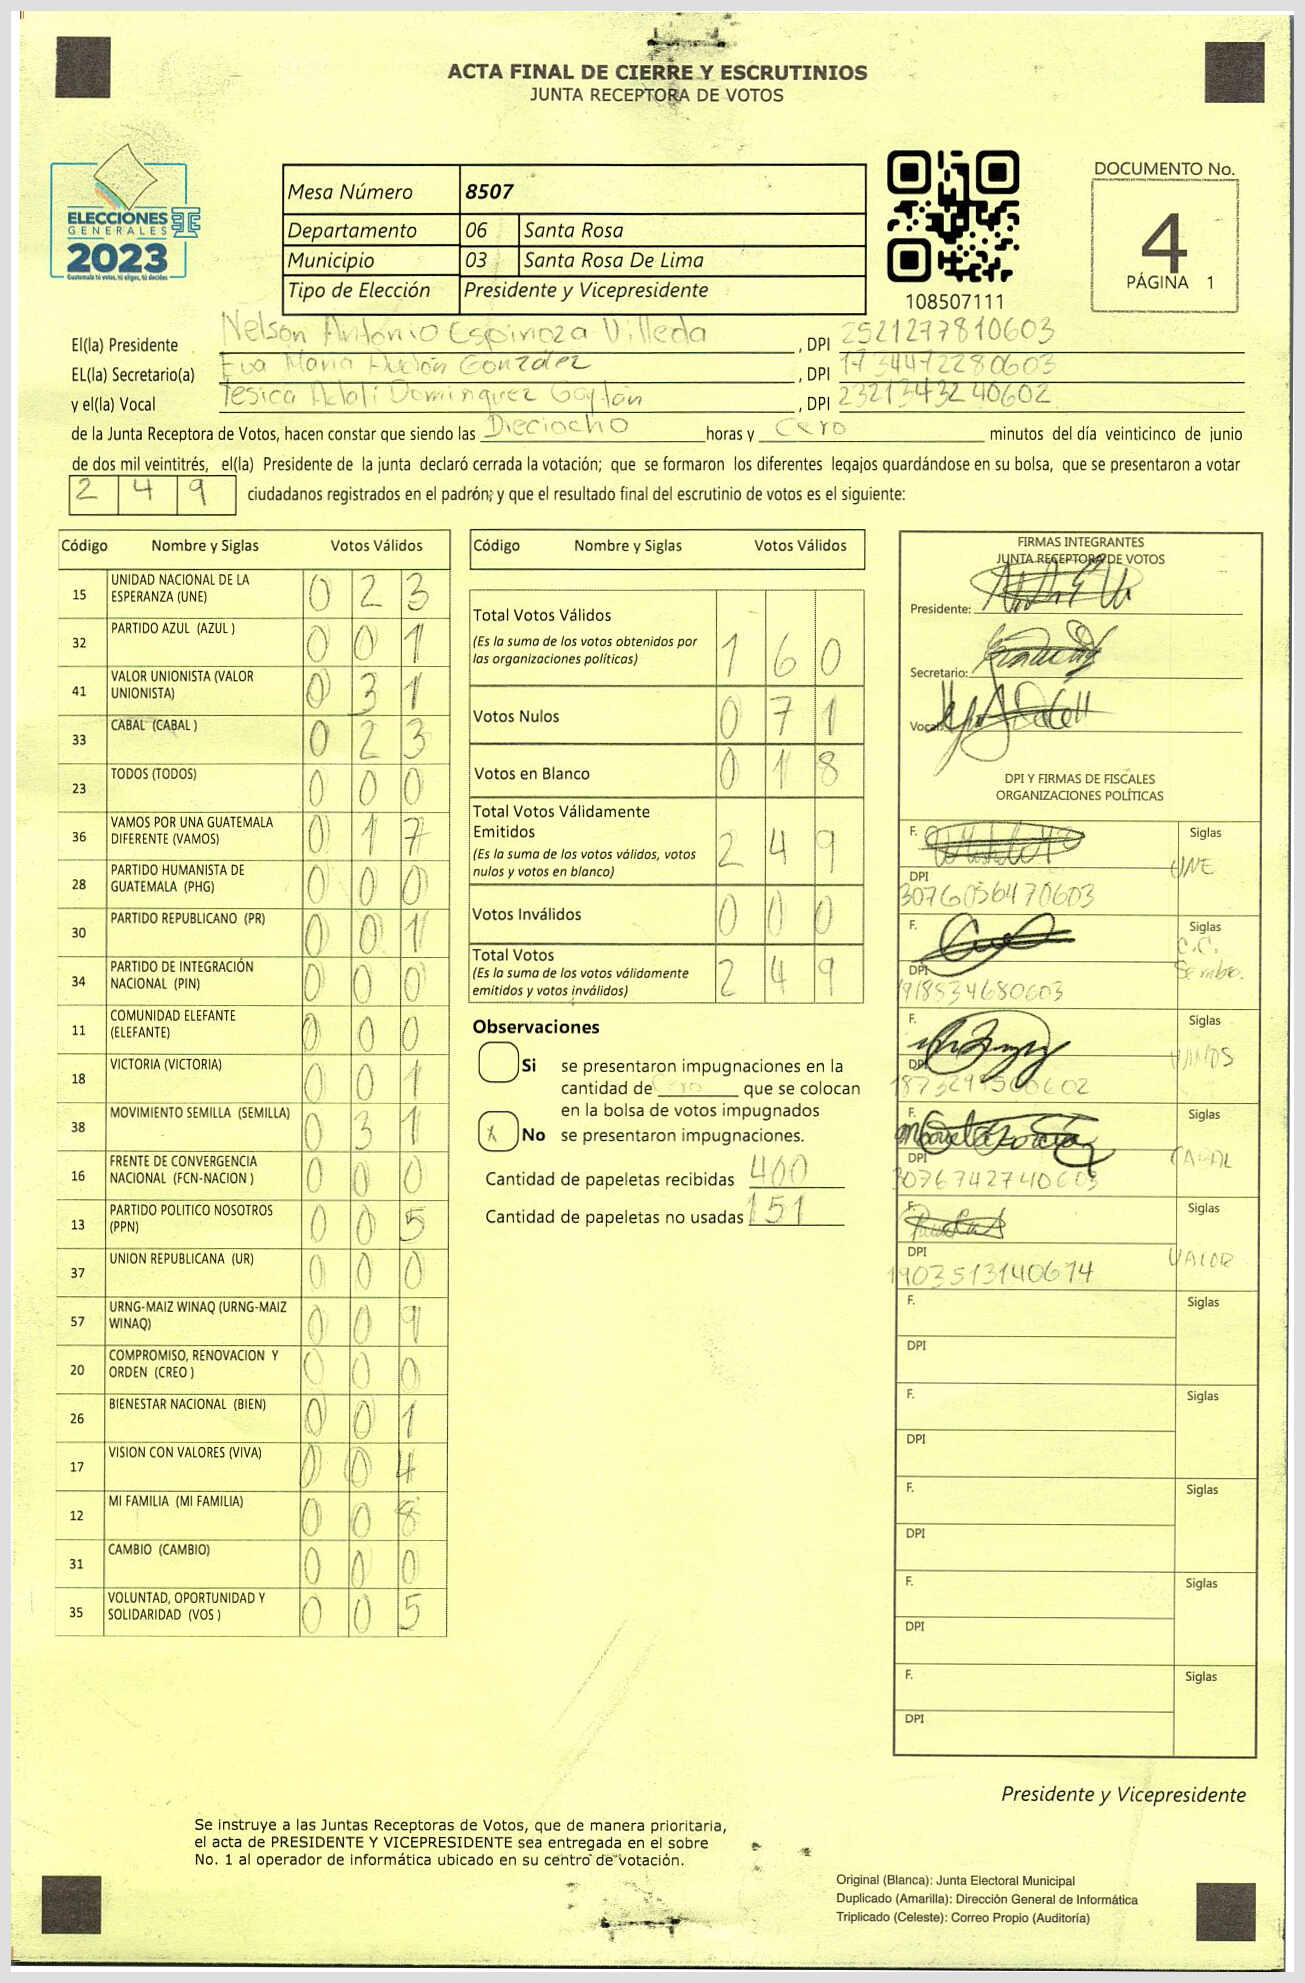 ACTA FINAL DE CIERRE Y ESCRUTINIOS
JUNTA RECEPTORA DE VOTOS
ELECCIONES
GENERALES
2023
Guatemala tú votas, tú eliges, tú decides
Mesa Número 8507
Departamento 06 Santa Rosa
Municipio 03 Santa Rosa De Lima
Tipo de Elección Presidente y Vicepresidente
108507111
DOCUMENTO No.
4
PÁGINA 1
El(la) Presidente Nelson Antonio Espinoza Villeda, DPI 2521277810603
EL(la) Secretario(a) Eva María González, DPI 1734472280603
y el(la) Vocal Domínguez Gaytán, DPI 2321343240602
de la Junta Receptora de Votos, hacen constar que siendo las Dieciocho horas y Cero minutos del día veinticinco de junio
de dos mil veintitrés, el(la) Presidente de la junta declaró cerrada la votación; que se formaron los diferentes legajos guardándose en su bolsa, que se presentaron a votar
249 ciudadanos registrados en el padrón; y que el resultado final del escrutinio de votos es el siguiente:
Código Nombre y Siglas Votos Válidos
15 UNIDAD NACIONAL DE LA ESPERANZA (UNE) 023
32 PARTIDO AZUL (AZUL ) 001
41 VALOR UNIONISTA (VALOR UNIONISTA) 031
33 CABAL (CABAL ) 023
23 TODOS (TODOS) 000
36 VAMOS POR UNA GUATEMALA DIFERENTE (VAMOS) 017
28 PARTIDO HUMANISTA DE GUATEMALA (PHG) 000
30 PARTIDO REPUBLICANO (PR) 001
34 PARTIDO DE INTEGRACIÓN NACIONAL (PIN) 000
11 COMUNIDAD ELEFANTE (ELEFANTE) 000
18 VICTORIA (VICTORIA) 001
38 MOVIMIENTO SEMILLA (SEMILLA) 031
16 FRENTE DE CONVERGENCIA NACIONAL (FCN-NACION ) 000
13 PARTIDO POLITICO NOSOTROS (PPN) 005
37 UNION REPUBLICANA (UR) 000
57 URNG-MAIZ WINAQ (URNG-MAIZ WINAQ) 009
20 COMPROMISO, RENOVACION Y ORDEN (CREO ) 000
26 BIENESTAR NACIONAL (BIEN) 001
17 VISION CON VALORES (VIVA) 004
12 MI FAMILIA (MI FAMILIA) 008
31 CAMBIO (CAMBIO) 000
35 VOLUNTAD, OPORTUNIDAD Y SOLIDARIDAD (VOS ) 005
Código Nombre y Siglas Votos Válidos
Total Votos Válidos 160
(Es la suma de los votos obtenidos por
las organizaciones políticas)
Votos Nulos 071
Votos en Blanco 018
Total Votos Válidamente
Emitidos 249
(Es la suma de los votos válidos, votos
nulos y votos en blanco)
Votos Inválidos 000
Total Votos 249
(Es la suma de los votos válidamente
emitidos y votos inválidos)
Observaciones
Si se presentaron impugnaciones en la
cantidad de Cero que se colocan
en la bolsa de votos impugnados
X No se presentaron impugnaciones.
Cantidad de papeletas recibidas 400
Cantidad de papeletas no usadas 151
FIRMAS INTEGRANTES
JUNTA RECEPTORA DE VOTOS
Presidente:
Secretario:
Vocal:
DPI Y FIRMAS DE FISCALES
ORGANIZACIONES POLÍTICAS
F. Siglas UNE
DPI 3076056470603
F. Siglas C.C.
DPI 1918534680603
F. Siglas VAMOS
DPI
F. Siglas CABAL
DPI 3076742740603
F. Siglas VALOR
DPI 1903513140614
F. Siglas
DPI
F. Siglas
DPI
F. Siglas
DPI
F. Siglas
DPI
F. Siglas
DPI
Presidente y Vicepresidente
Se instruye a las Juntas Receptoras de Votos, que de manera prioritaria,
el acta de PRESIDENTE Y VICEPRESIDENTE sea entregada en el sobre
No. 1 al operador de informática ubicado en su centro de votación.
Original (Blanca): Junta Electoral Municipal
Duplicado (Amarilla): Dirección General de Informática
Triplicado (Celeste): Correo Propio (Auditoría)